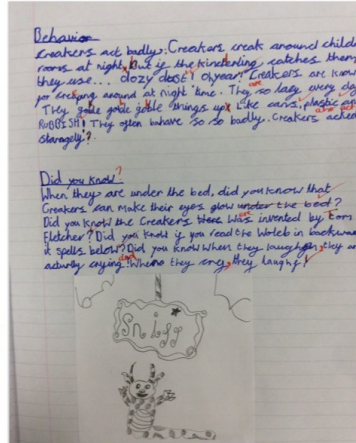 Behavior
Creakers act badly. Creakers creak around child
rooms at night, But if the kinderling catches them
they use... dozy dost! Oh year! Creakers are know
for creeping around at night time. They are so lazy every day
They goble goble goble things up! Like cans, plastic a
RUBBISH! They often bahave so so badly. Creakers ached
starngely?.
Did you know?
When they are under the bed, did you know that
Creakers can make their eyes glow under the bed?
Did you know the Creakers was invented by tom
Fletcher? Did you know if you read the Woleb in backwar
it spells below? Did you know when they laugh, they ar
actually crying and when they cry, they laugh!
Sniff